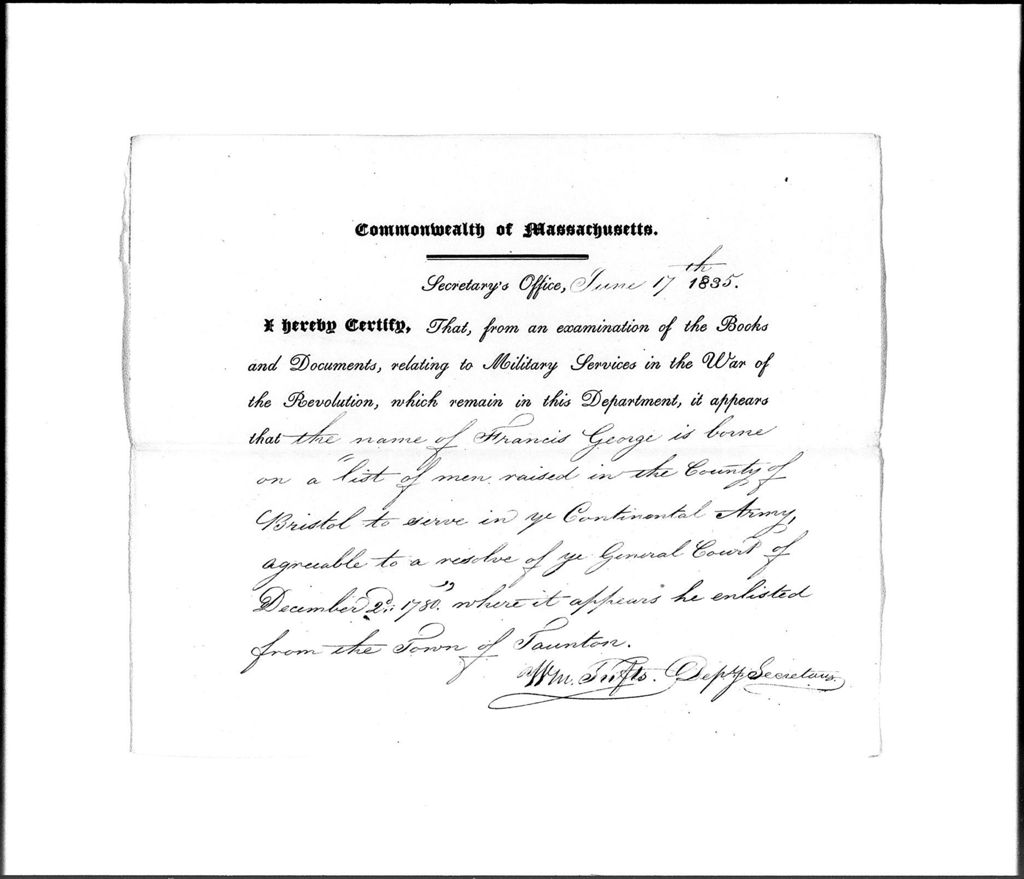 Commonwealth of Massachusetts.
Secretary's Office, June 17th 1835.
I hereby Certify, That, from an examination of the Books
and Documents, relating to Military Services in the War of
the Revolution, which remain in this Department, it appears
that the name of Francis George is borne
on a "list of men raised in the County of
Bristol to serve in ye Continental Army,
agreeable to a resolve of ye General Court of
December 2d: 1780," where it appears he enlisted
from the Town of Taunton.
Wm. Tufts. Depy Secretary.